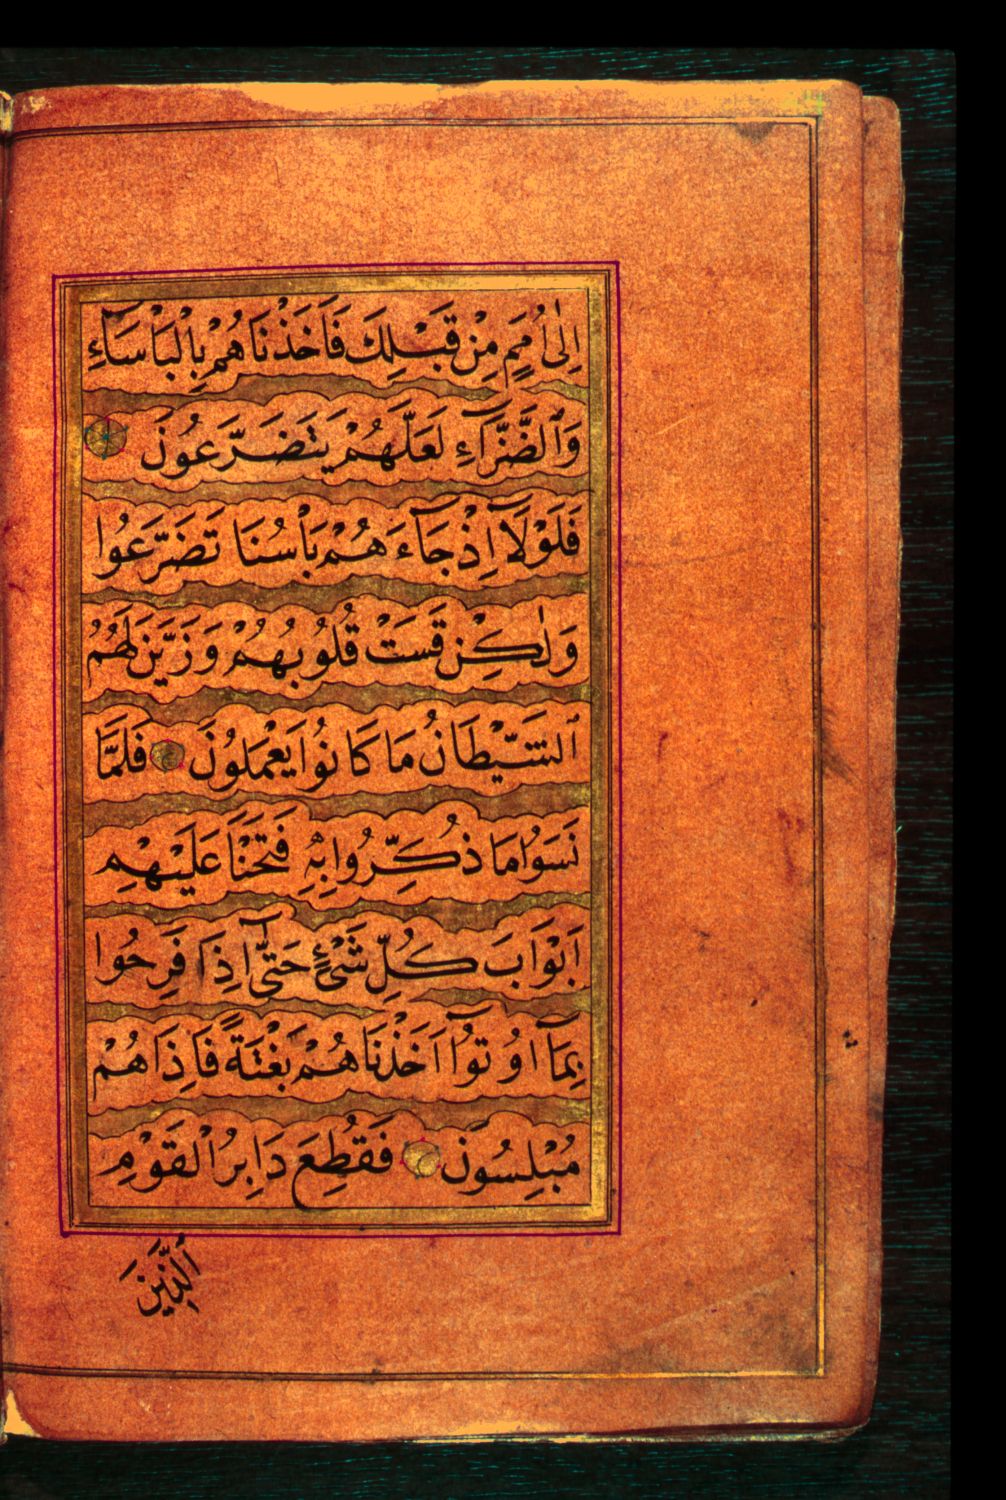 اِلٰى اُمَمٍ مِنْ قَبْلِكَ فَاَخَذْنَاهُمْ بِالْبَاْسَآءِ
وَالضَّرَّآءِ لَعَلَّهُمْ يَتَضَرَّعُونَ
فَلَوْلَآ اِذْ جَآءَهُمْ بَاْسُنَا تَضَرَّعُوا
وَلٰكِنْ قَسَتْ قُلُوبُهُمْ وَزَيَّنَ لَهُمُ
الشَّيْطَانُ مَا كَانُوا يَعْمَلُونَ فَلَمَّا
نَسَوْا مَا ذُكِّرُوا بِهٖ فَتَحْنَا عَلَيْهِمْ
اَبْوَابَ كُلِّ شَىْءٍ حَتّٰٓى اِذَا فَرِحُوا
بِمَآ اُوتُوٓا اَخَذْنَاهُمْ بَغْتَةً فَاِذَا هُمْ
مُبْلِسُونَ فَقُطِعَ دَابِرُ الْقَوْمِ
الَّذِينَ